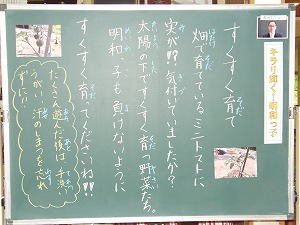 キラリ輝く!明和っ子
すくすく育て
畑で育てているミニトマトに
実が!!?気付いていましたか?
太陽の下ですくすく育つ野菜たち。
明和っ子も負けないように
すくすく育ってくださいね!!
たくさん遊んだ後は、手洗い
うがい、汗のしまつを忘れ
ずに!!